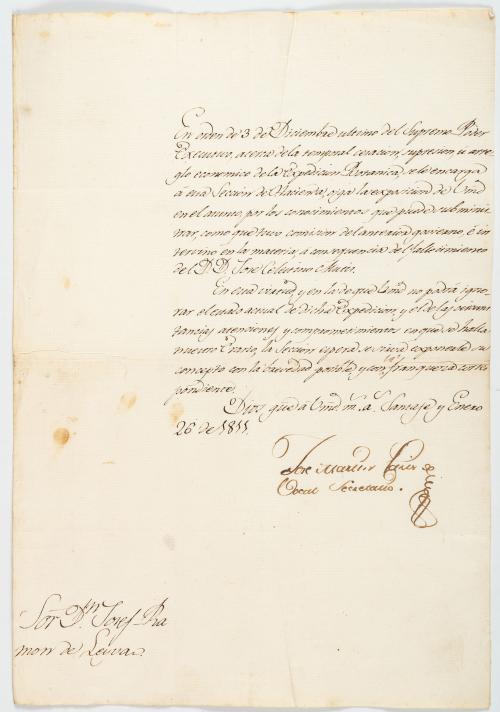 En orden de 3 de Diciembre ultimo del Supremo Poder
Executivo, acerca de la temporal cesacion, supresion, ú arre-
glo economico de la Expedicion Botanica, se le encarga
á esta Seccion de Hacienda, oiga la exposicion de Vmd
en el asunto, por los conocimientos que puede subminis-
trar, como que tuvo comision del anterior govierno, é in-
tervino en la materia, á consequencia del fallecimiento
del D.D. José Celestino Mutis.
En esta virtud, y en la de que Vmd no podrá igno-
rar el estado actual de dicha Expedicion, y el de las
atenciones, y comprometimientos en que se halla
nuestro Erario, la Seccion espera se sirva exponerle su
concepto con la brevedad posible, y con la franqueza corres-
pondiente.
Dios gue á Vmd. m.s a.s Santafé y Enero
26 de 1811.
José
Vocal Secretario.
Sor. Dn. Josef Ra
mon de Leiva.